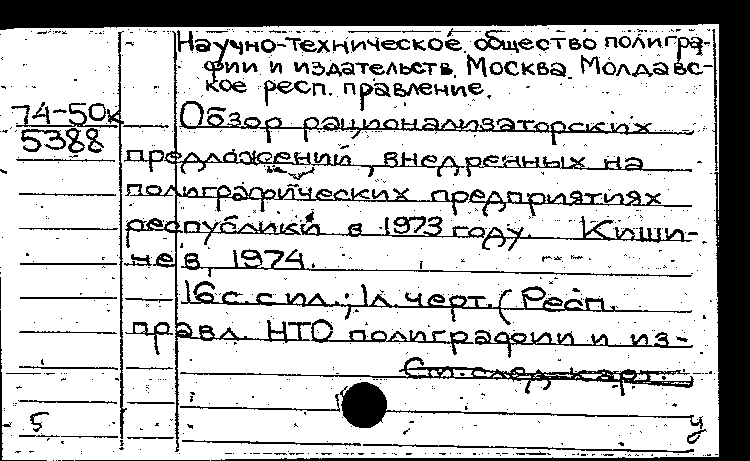 Научно-техническое общество полигра-
фии и издательств. Москва. Молдавс-
кое респ. правление.
74-50к
5388
Обзор рационализаторских
предложений, внедренных на
полиграфических предприятиях
республики в 1973 году. Киши-
нев, 1974.
16 с. с ил.; 1 л. черт. (Респ.
правл. НТО полиграфии и из-
См. след. карт.
5
у